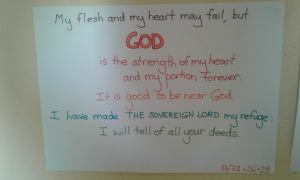 My flesh and my heart may fail, but
GOD
is the strength of my heart
and my portion forever.
It is good to be near God.
I have made THE SOVEREIGN LORD my refuge:
I will tell of all your deeds.
Ps73 v26-28